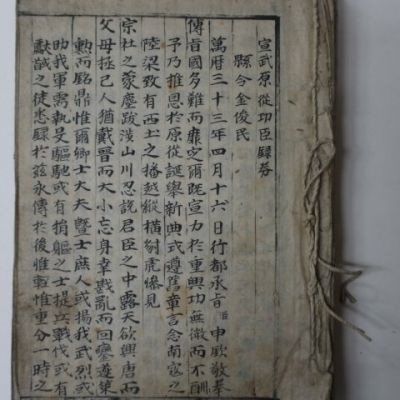 宣武原從功臣錄券
縣令金俊民
萬曆三十三年四月十六日行都承旨申欽敬奉
傳旨國多難而靡定爾旣宣力於重興功無微而不酬
予乃推恩於原從誕擧新典式遵舊章言念南寇之
陸梁致有西土之播越縱橫豺虎慘見
宗社之蒙塵跋涉山川忍說君臣之中露天欲興唐而
父母拯已人猶戴晉而大小忘身幸戡亂而回鑾遂策
勳而銘鼎惟爾卿士大夫曁士庶人或揚我武烈或
助我軍需執殳驅馳或有捐軀之士提立戰伐或有
獻馘之徒悉錄於茲永傳於後惟輕惟重分一時之